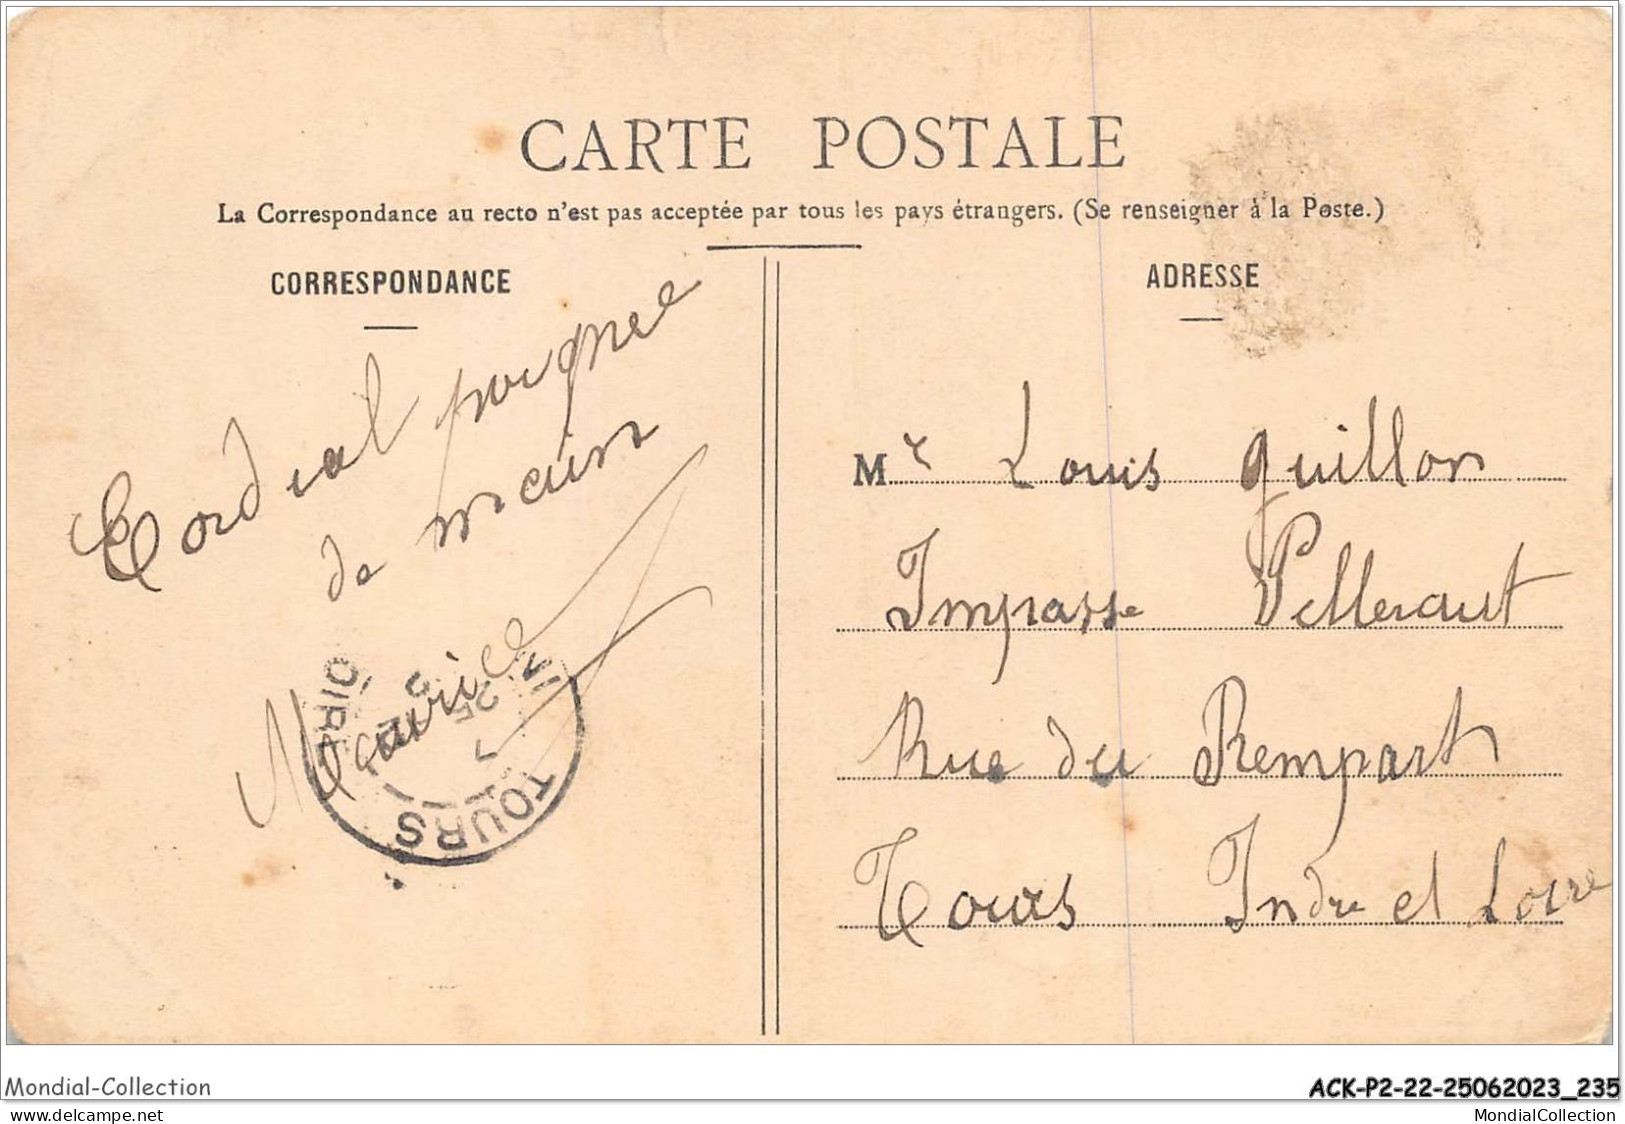 CARTE POSTALE
La Correspondance au recto n'est pas acceptée par tous les pays étrangers. (Se renseigner à la Poste.)
CORRESPONDANCE
Cordial poignee
de main
Maurice
TOURS
ADRESSE
Mr Louis Guillon
Impasse Pelleraut
Rue du Rempart
Tours Indre et Loire
Mondial-Collection
ACK-P2-22-25062023_235
www.delcampe.net
MondialCollection